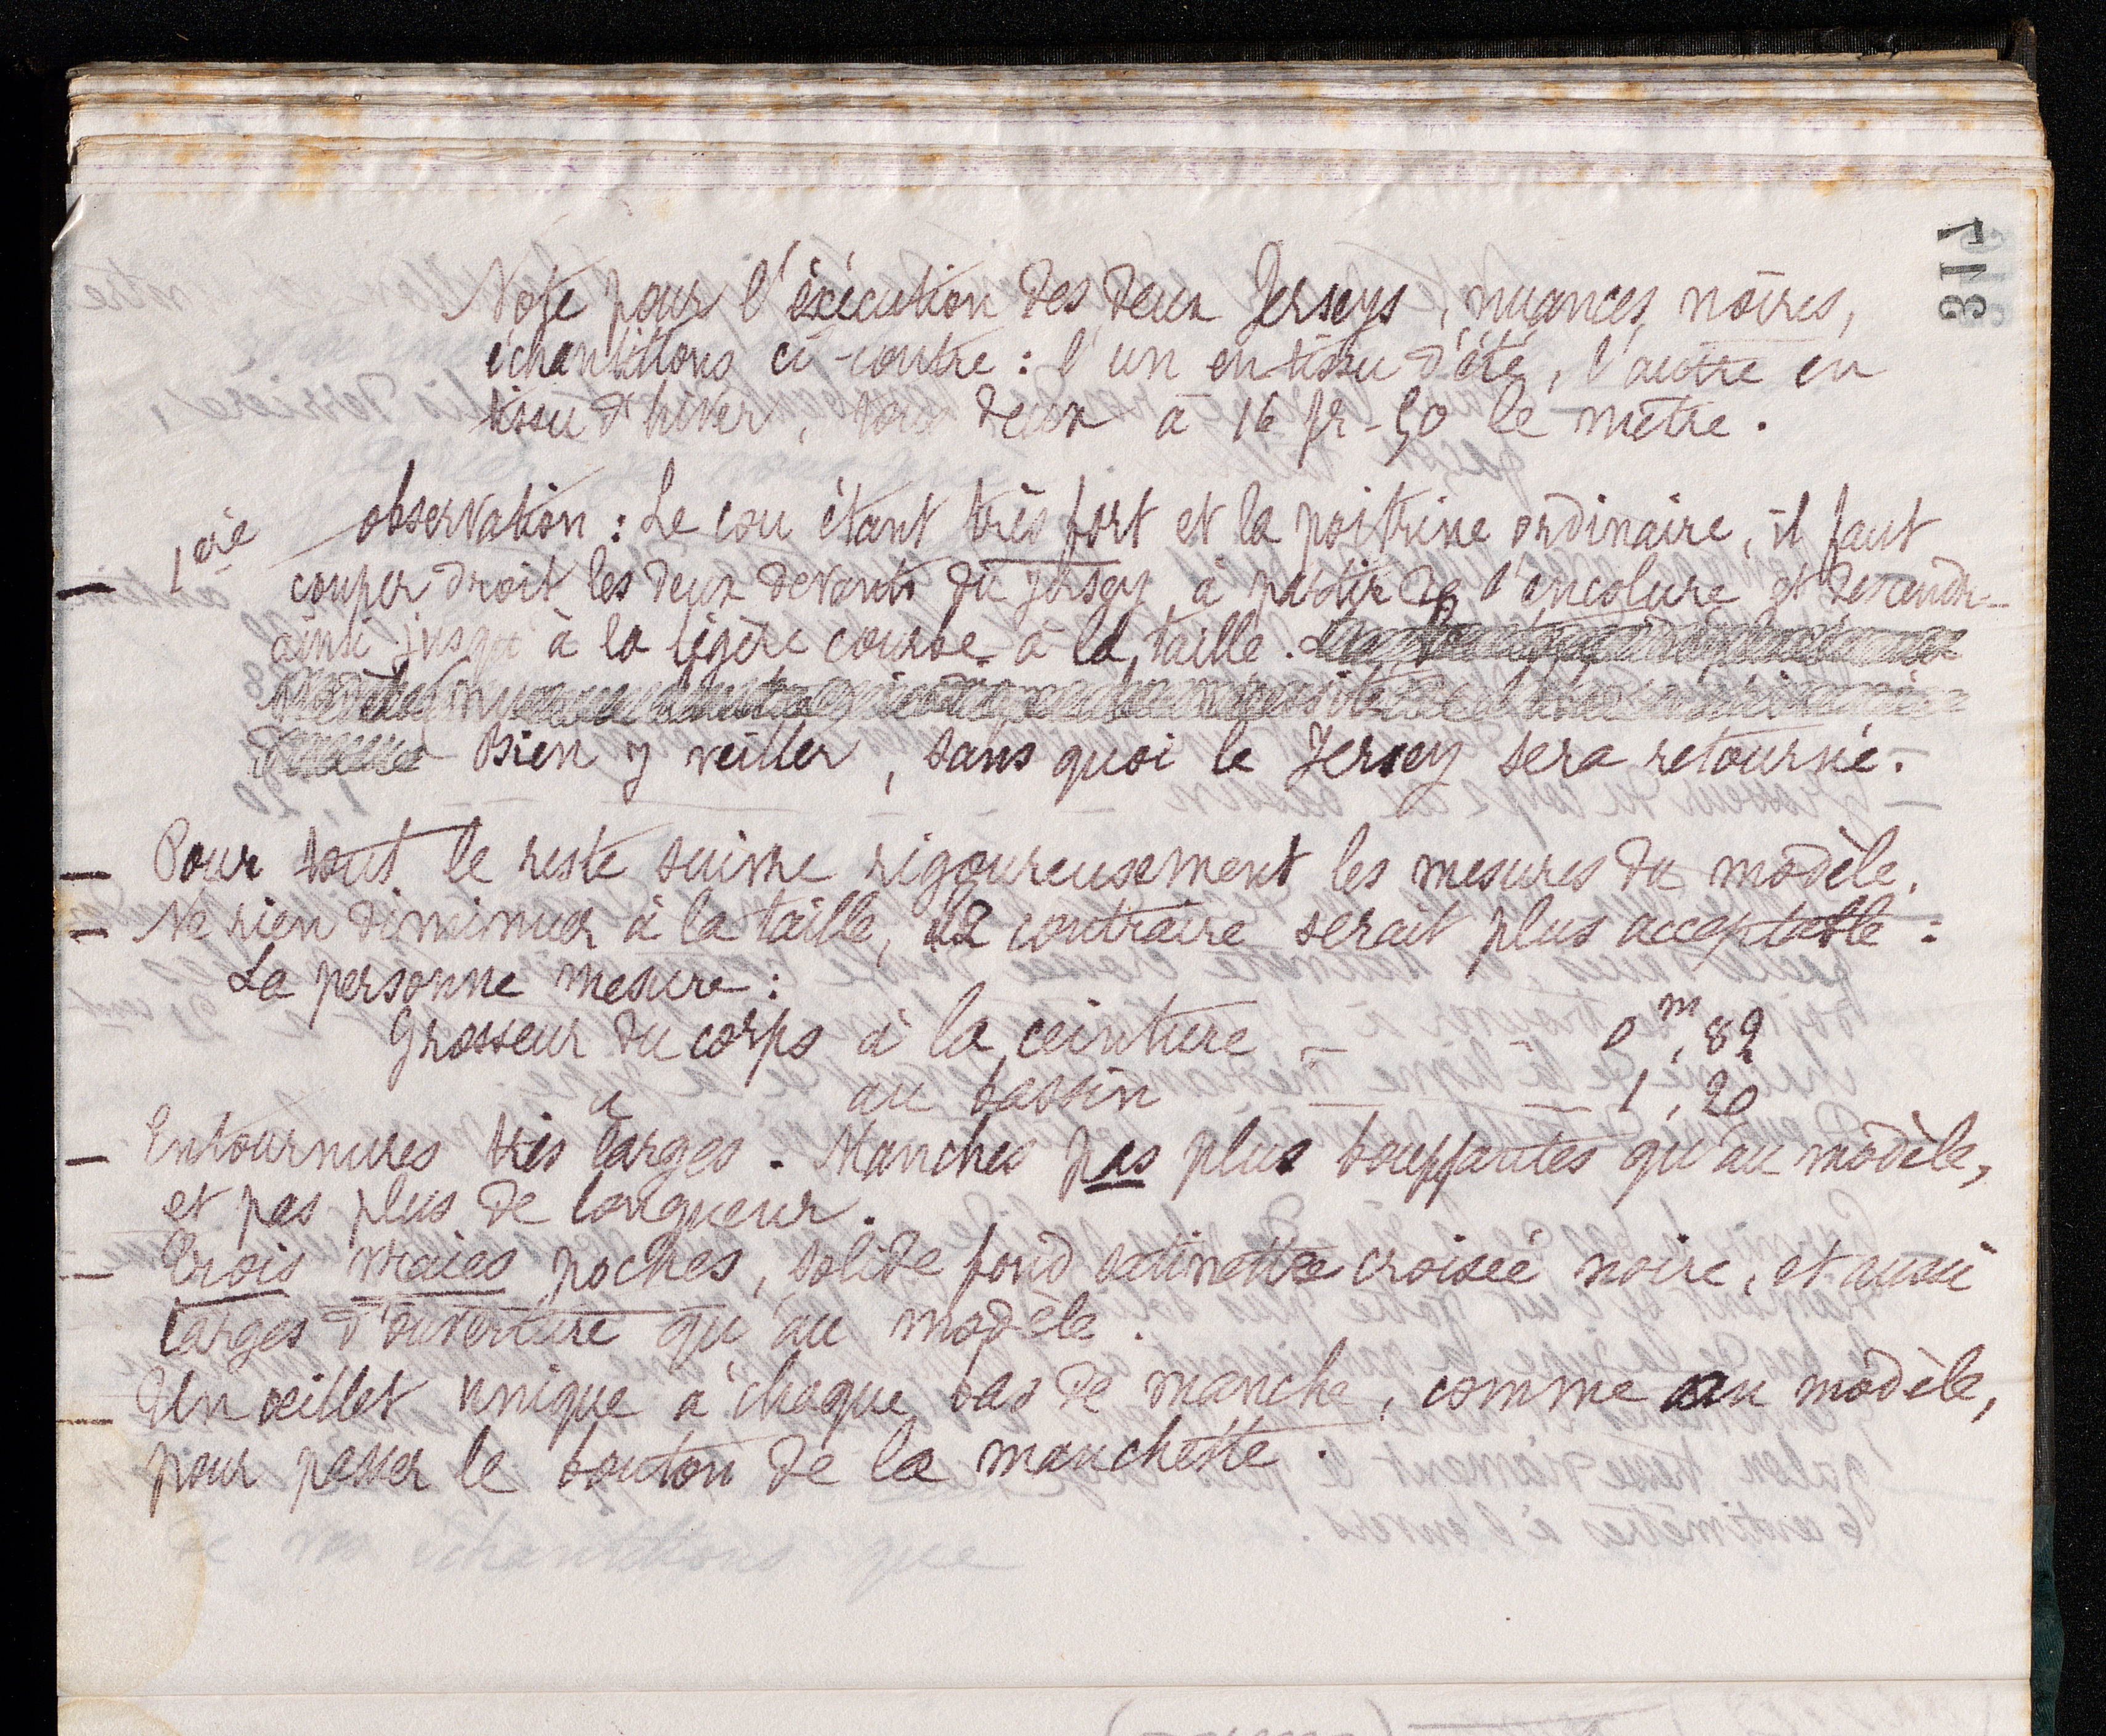 311
Note pour l'éxécution des deux Jerseys, nuances noires,
échantillons ci-contre : l'un en tissu d'été, l'autre en
tissu d'hiver, tous deux à 16 fr-50 le mètre.
1ère observation : Le cou étant très fort et la poitrine ordinaire, il faut
couper droit les deux devants du Jersey, à partir de l'encolure et descendre
ainsi jusqu'à la légère courbe à la taille.
Bien y veiller, sans quoi le Jersey sera retourné.
— Pour tout le reste suivre rigoureusement les mesures du modèle.
— Ne rien diminuer à la taille, le contraire serait plus acceptable :
La personne mesure :
Grosseur du corps à la ceinture — — 0m,82
" au bassin — — 1,20
— Entournures très larges. Manches pas plus bouffantes qu'au modèle,
et pas plus de longueur.
— Trois vraies poches, solide fond satinette croisée noire, et aussi
larges d'ouverture qu'au modèle.
— Un œillet unique à chaque bas de manche, comme au modèle,
pour passer le bouton de la manchette.
de vos échantillons que